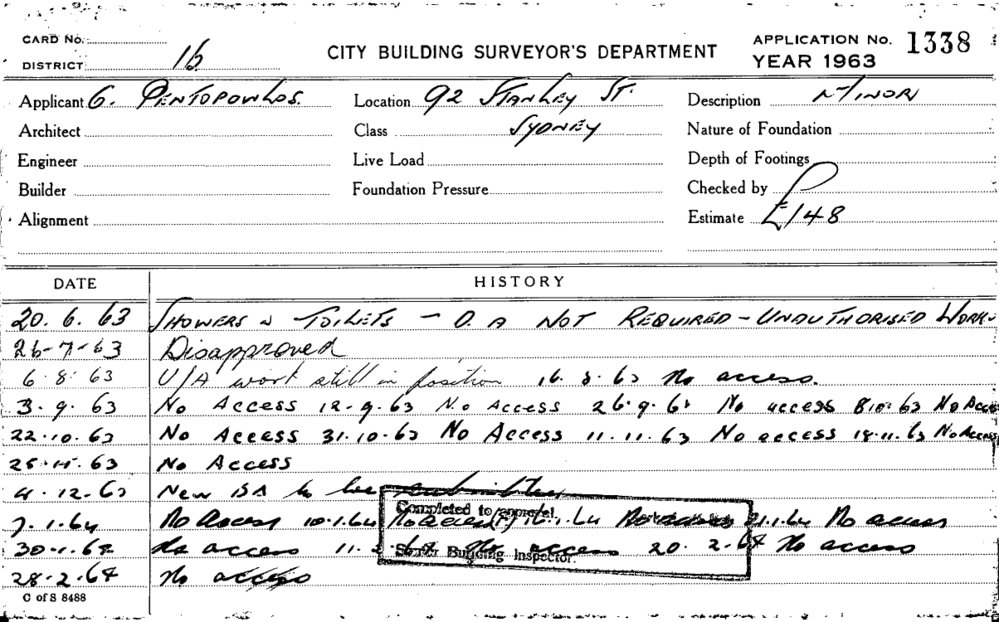 CARD No.
DISTRICT 16
CITY BUILDING SURVEYOR'S DEPARTMENT
APPLICATION No. 1338
YEAR 1963
Applicant G. PENTOPOWLOS. Location 92 STANLEY ST. Description MINOR
Architect Class SYDNEY Nature of Foundation
Engineer Live Load Depth of Footings
Builder Foundation Pressure Checked by
Alignment Estimate £148
DATE HISTORY
20. 6. 63 SHOWERS & TOILETS - D.A NOT REQUIRED - UNAUTHORISED WORK-
26-7-63 Disapproved
6. 8. 63 U/A work still in position 16. 8. 63 No access.
3. 9. 63 No Access 12. 9. 63 No Access 26. 9. 63 No access 8.10.63 No Access
22.10.63 No Access 31.10.63 No Access 11.11.63 No access 18.11.63 No Access
25.11.63 No Access
4.12.63 New BA to be submitted
7.1.64 No Access 10.1.64 No access 16.1.64 No access 21.1.64 No access
Completed to approval.
30.1.64 No access 11.2.64 No access 20.2.64 No access
Senior Building Inspector.
28.2.64 No access
C of S 8488